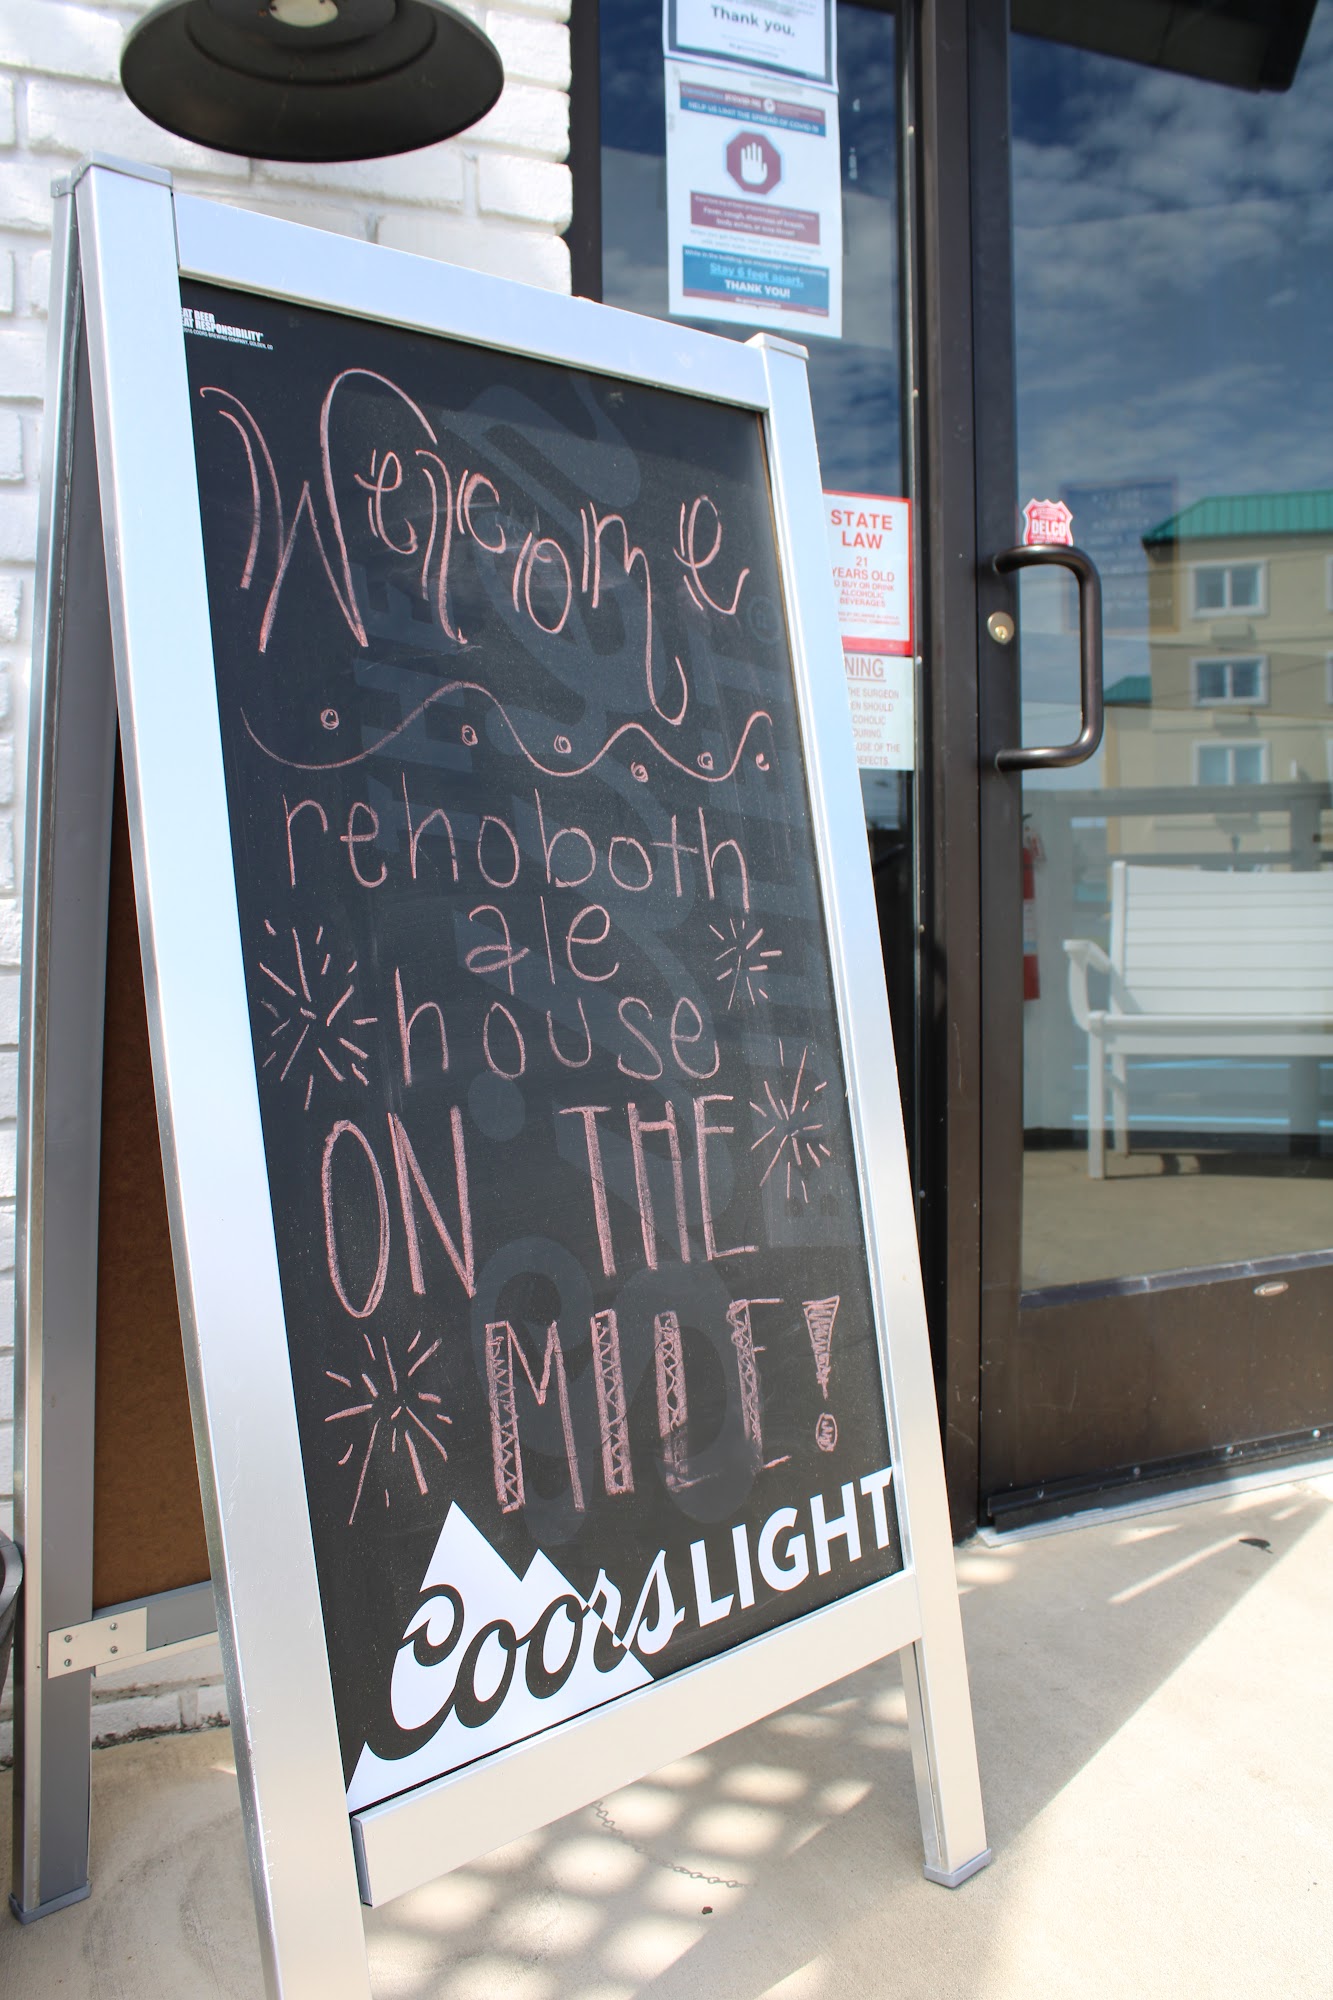 Thank you.
HELP US LIMIT THE SPREAD OF COVID-19
Fever, cough, shortness of breath,
body aches, or sore throat
Stay 6 feet apart.
THANK YOU!
AT BEER
AT RESPONSIBILITY
COORS BREWING COMPANY, GOLDEN, CO
Welcome
rehoboth
ale
house
ON THE
MILE!
Coors LIGHT
STATE
LAW
21
YEARS OLD
O BUY OR DRINK
ALCOHOLIC
BEVERAGES
NING
THE SURGEON
EN SHOULD
COHOLIC
DURING
USE OF THE
DEFECTS.
DELCO